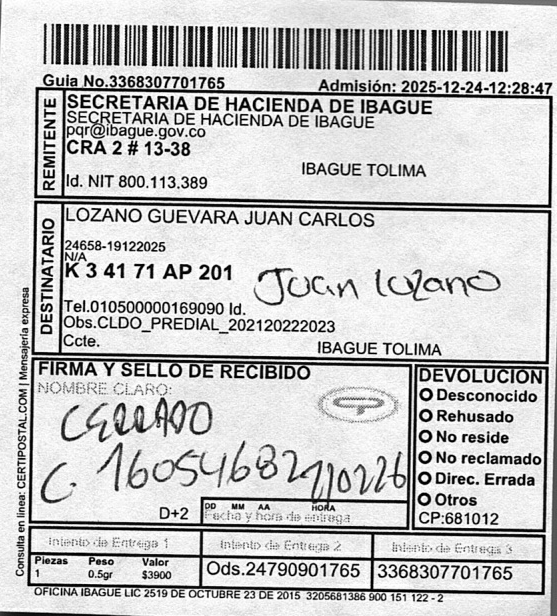 Guia No.3368307701765
Admisión: 2025-12-24-12:28:47
REMITENTE
SECRETARIA DE HACIENDA DE IBAGUE
SECRETARIA DE HACIENDA DE IBAGUE
pqr@ibague.gov.co
CRA 2 # 13-38
IBAGUE TOLIMA
Id. NIT 800.113.389
DESTINATARIO
LOZANO GUEVARA JUAN CARLOS
24658-19122025
N/A
K 3 41 71 AP 201
Juan Lozano
Tel.010500000169090 Id.
Obs.CLDO_PREDIAL_202120222023
Ccte.
IBAGUE TOLIMA
FIRMA Y SELLO DE RECIBIDO
NOMBRE CLARO:
CERRADO
C. 16054682
D+2
DD MM AA HORA
Fecha y hora de entrega
DEVOLUCIÓN
Desconocido
Rehusado
No reside
No reclamado
Direc. Errada
Otros
CP:681012
Intento de Entrega 1
Intento de Entrega 2
Intento de Entrega 3
Piezas Peso Valor
1 0.5gr $3900
Ods.24790901765
3368307701765
OFICINA IBAGUE LIC 2519 DE OCTUBRE 23 DE 2015 3205681386 900 151 122 - 2
Consulta en linea: CERTIPOSTAL.COM | Mensajería expresa